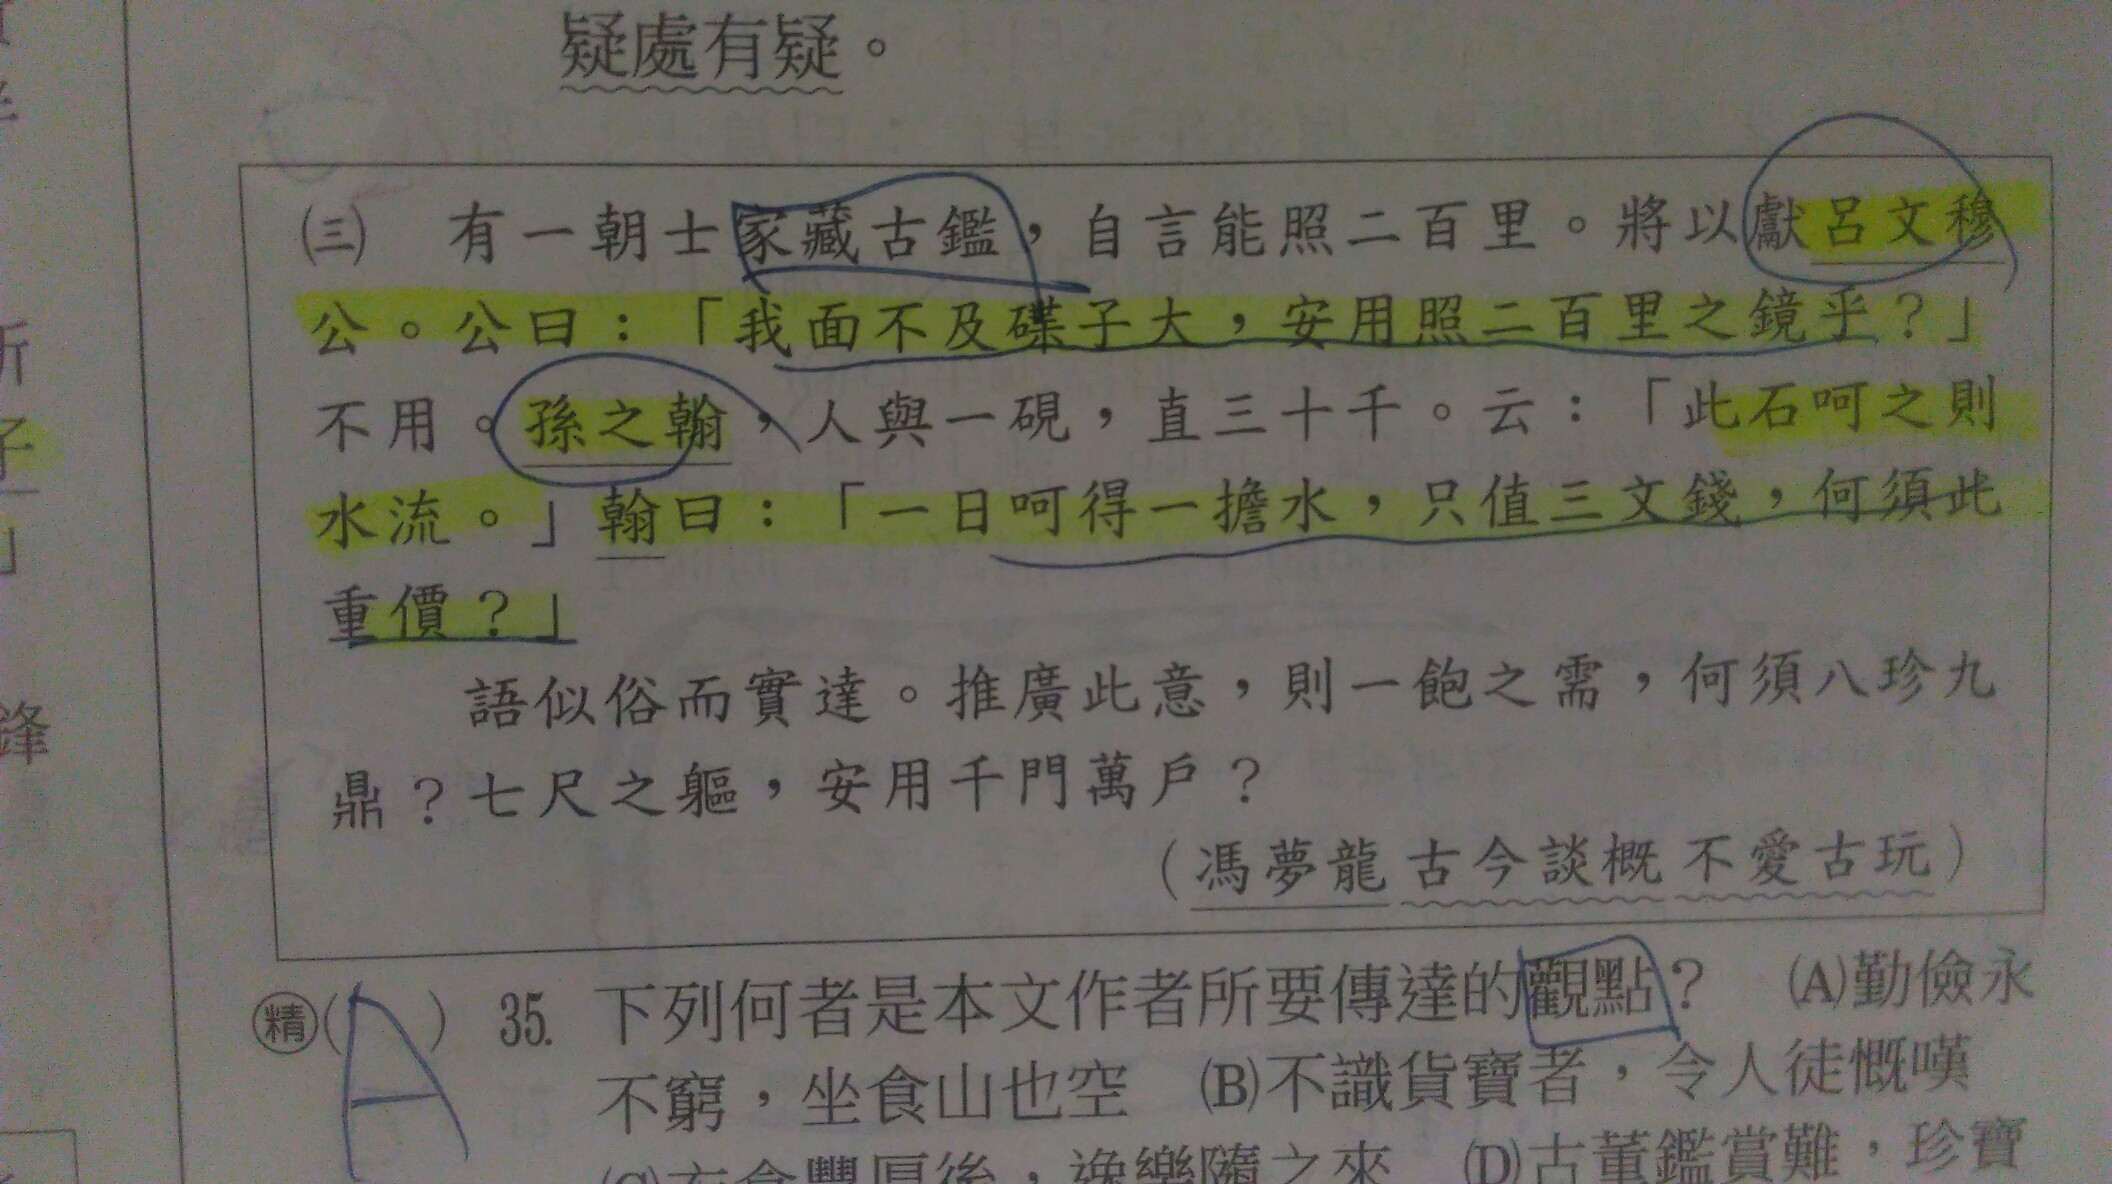 疑處有疑。
㈢　有一朝士家藏古鑑，自言能照二百里。將以獻呂文穆
公。公曰：「我面不及碟子大，安用照二百里之鏡乎？」
不用。孫之翰，人與一硯，直三十千。云：「此石呵之則
水流。」翰曰：「一日呵得一擔水，只值三文錢，何須此
重價？」
語似俗而實達。推廣此意，則一飽之需，何須八珍九
鼎？七尺之軀，安用千門萬戶？
（馮夢龍古今談概不愛古玩）
精(A) 35. 下列何者是本文作者所要傳達的觀點？　(A)勤儉永
不窮，坐食山也空　(B)不識貨寶者，令人徒慨嘆
(C)衣食豐厚後，逸樂隨之來　(D)古董鑑賞難，珍寶
所
子
」
鋒